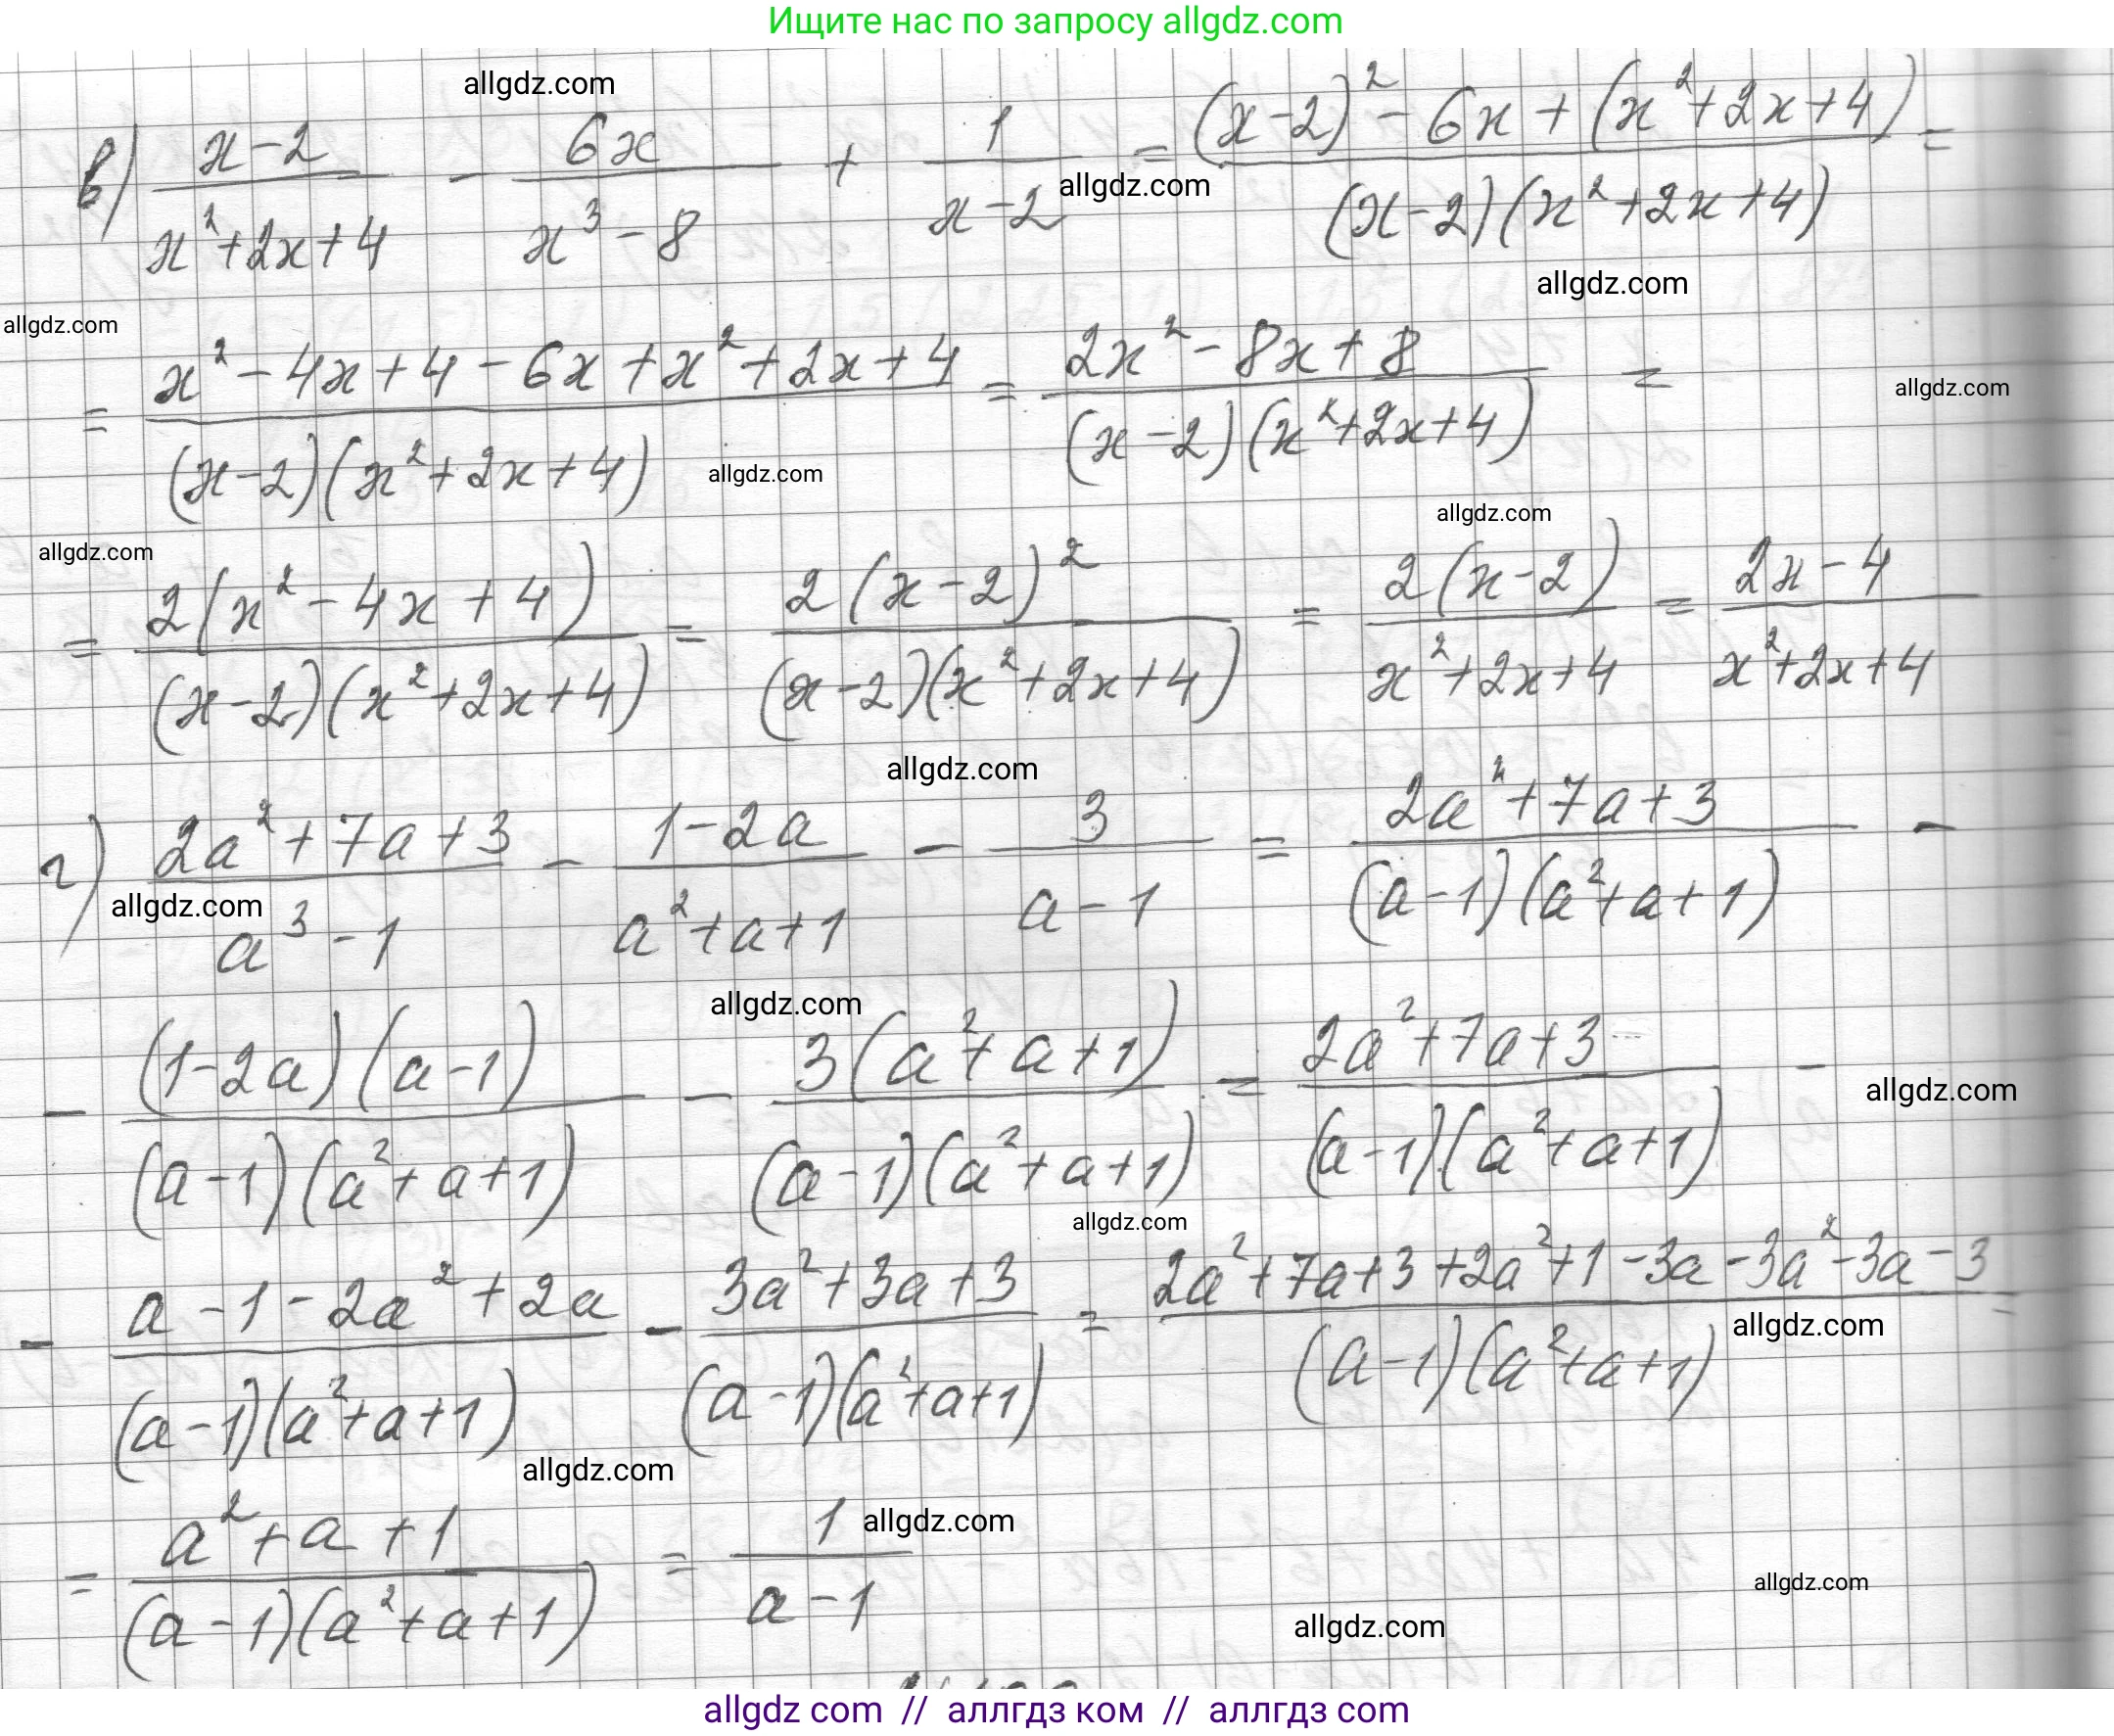 Ищите нас по запросу allgdz.com
allgdz.com
в) (x-2)/(x²+2x+4) - 6x/(x³-8) + 1/(x-2) = ((x-2)²-6x+(x²+2x+4))/((x-2)(x²+2x+4)) =
allgdz.com
allgdz.com
allgdz.com
= (x²-4x+4-6x+x²+2x+4)/((x-2)(x²+2x+4)) = (2x²-8x+8)/((x-2)(x²+2x+4)) =
allgdz.com
allgdz.com
allgdz.com
allgdz.com
= 2(x²-4x+4)/((x-2)(x²+2x+4)) = 2(x-2)²/((x-2)(x²+2x+4)) = 2(x-2)/(x²+2x+4) = (2x-4)/(x²+2x+4)
allgdz.com
г) (2a²+7a+3)/(a³-1) - (1-2a)/(a²+a+1) - 3/(a-1) = (2a²+7a+3)/((a-1)(a²+a+1)) -
allgdz.com
allgdz.com
- (1-2a)(a-1)/((a-1)(a²+a+1)) - 3(a²+a+1)/((a-1)(a²+a+1)) = (2a²+7a+3)/((a-1)(a²+a+1)) -
allgdz.com
allgdz.com
- (a-1-2a²+2a)/((a-1)(a²+a+1)) - (3a²+3a+3)/((a-1)(a²+a+1)) = (2a²+7a+3+2a²+1-3a-3a²-3a-3)/((a-1)(a²+a+1)) =
allgdz.com
allgdz.com
= (a²+a+1)/((a-1)(a²+a+1)) = 1/(a-1)
allgdz.com
allgdz.com
allgdz.com
allgdz.com // аллгдз ком // аллгдз com